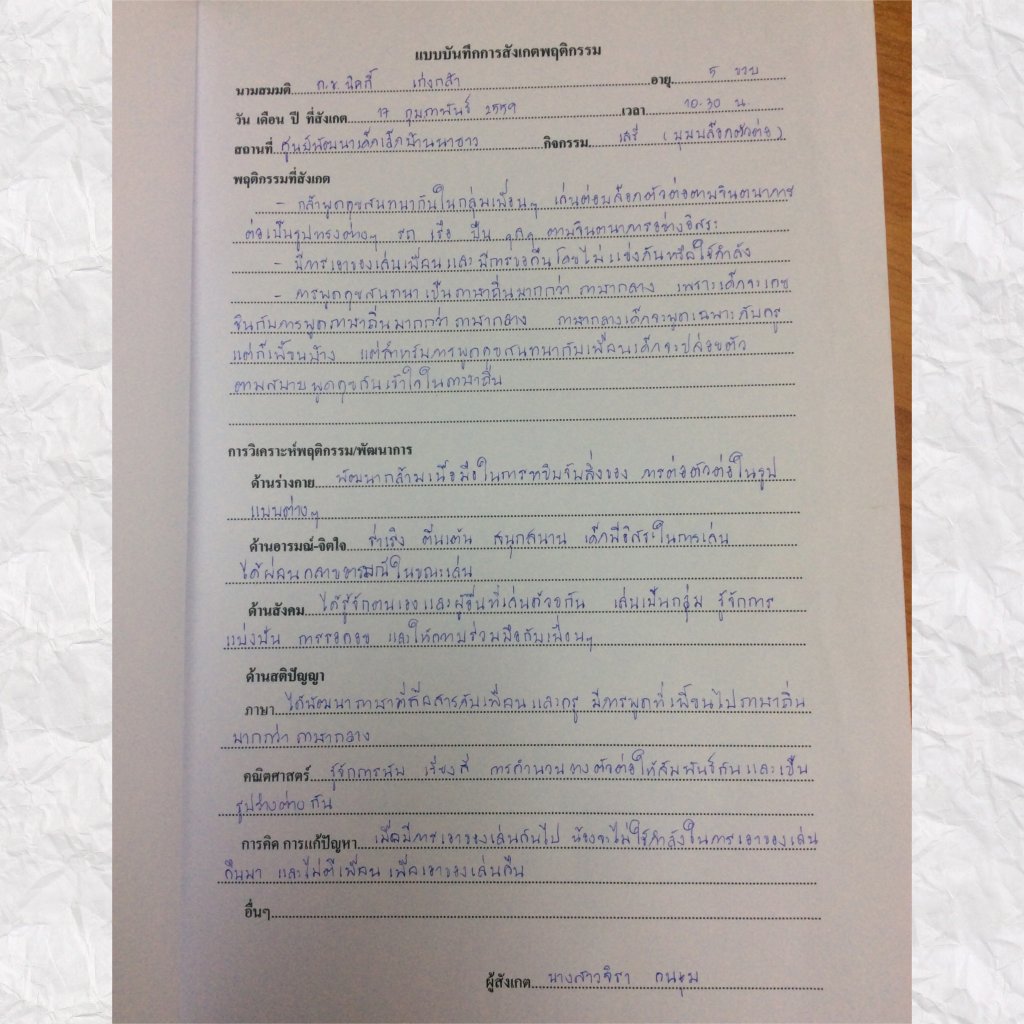 แบบบันทึกการสังเกตพฤติกรรม
นามสมมติ ด.ช. นิคกี้ เก่งกล้า อายุ 5 ขวบ
วัน เดือน ปี ที่สังเกต 17 กุมภาพันธ์ 2559 เวลา 10.30 น.
สถานที่ ศูนย์พัฒนาเด็กเล็กบ้านนายาว กิจกรรม เสรี (มุมบล็อกตัวต่อ)
พฤติกรรมที่สังเกต
- กล้าพูดคุยสนทนากันในกลุ่มเพื่อนๆ เล่นต่อบล็อกตัวต่อตามจินตนาการ
ต่อเป็นรูปทรงต่างๆ รถ เรือ ปืน ฯลฯ ตามจินตนาการอย่างอิสระ
- มีการเอาของเล่นเพื่อนและมีการขอคืนโดยไม่แย่งกันหรือใช้กำลัง
- การพูดคุยสนทนาเป็นภาษาถิ่นมากกว่า ภาษากลาง เพราะเด็กจะเคย
ชินกับการพูดภาษาถิ่นมากกว่าภาษากลาง ภาษากลางเด็กจะพูดเฉพาะกับครู
แต่ก็เพี้ยนบ้าง แต่สำหรับการพูดคุยสนทนากับเพื่อนเด็กจะปล่อยตัว
ตามสบายพูดคุยกันเข้าใจในภาษาถิ่น
การวิเคราะห์พฤติกรรม/พัฒนาการ
ด้านร่างกาย พัฒนากล้ามเนื้อมือในการหยิบจับสิ่งของ การต่อตัวต่อในรูป
แบบต่างๆ
ด้านอารมณ์-จิตใจ ร่าเริง ตื่นเต้น สนุกสนาน เด็กมีอิสระในการเล่น
ได้ผ่อนคลายอารมณ์ในขณะเล่น
ด้านสังคม ได้รู้จักตนเองและผู้อื่นที่เล่นด้วยกัน เล่นเป็นกลุ่ม รู้จักการ
แบ่งปัน การรอคอย และให้ความร่วมมือกับเพื่อนๆ
ด้านสติปัญญา
ภาษา ได้พัฒนาภาษาที่สื่อสารกับเพื่อนและครู มีการพูดที่เพี้ยนไปภาษาถิ่น
มากกว่าภาษากลาง
คณิตศาสตร์ รู้จักการนับ เรียงสี การคำนวนวางตัวต่อให้สัมพันธ์กันและเป็น
รูปร่างต่างกัน
การคิด การแก้ปัญหา เมื่อมีการเอาของเล่นกันไป น้องจะไม่ใช้กำลังในการเอาของเล่น
คืนมา และไม่ตีเพื่อน เพื่อเอาของเล่นคืน
อื่นๆ
ผู้สังเกต นางสาวจิรา